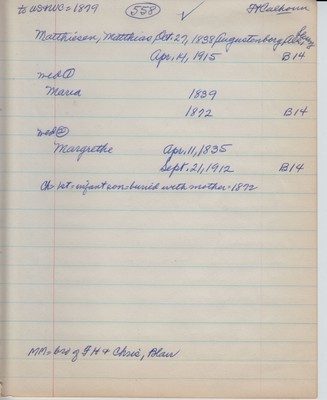 to US + Wis = 1879 558 ✓ Ft Calhoun
Matthiesen, Matthias Oct. 27, 1838 Augustenborg Als, Germ
Apr. 14, 1915 B14
md ①
Maria 1839
1872 B14
md ②
Margrethe Apr. 11, 1835
Sept. 21, 1912 B14
Ch - 1st = infant son buried with mother - 1872
MM = bro of F H & Chris, Blair